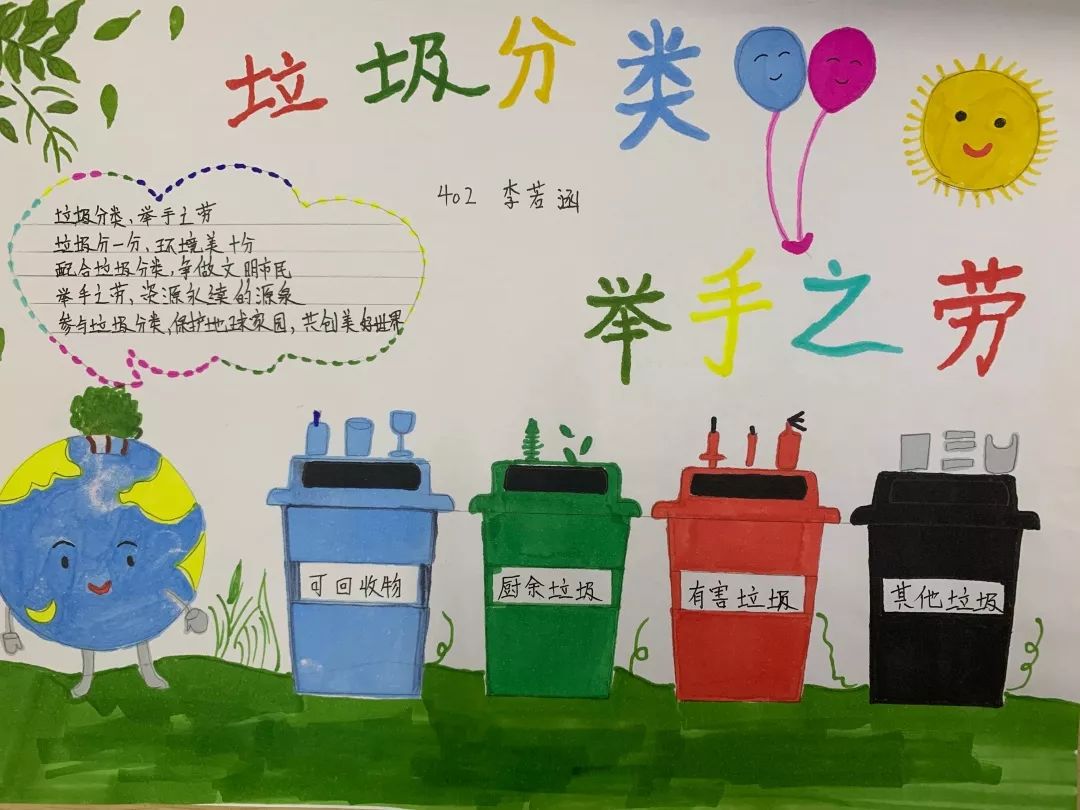 垃圾分类
402 李若涵
垃圾分类、举手之劳
垃圾分一分、环境美十分
配合垃圾分类,争做文明市民
举手之劳、资源永续的源泉
参与垃圾分类,保护地球家园,共创美好世界
举手之劳
可回收物
厨余垃圾
有害垃圾
其他垃圾